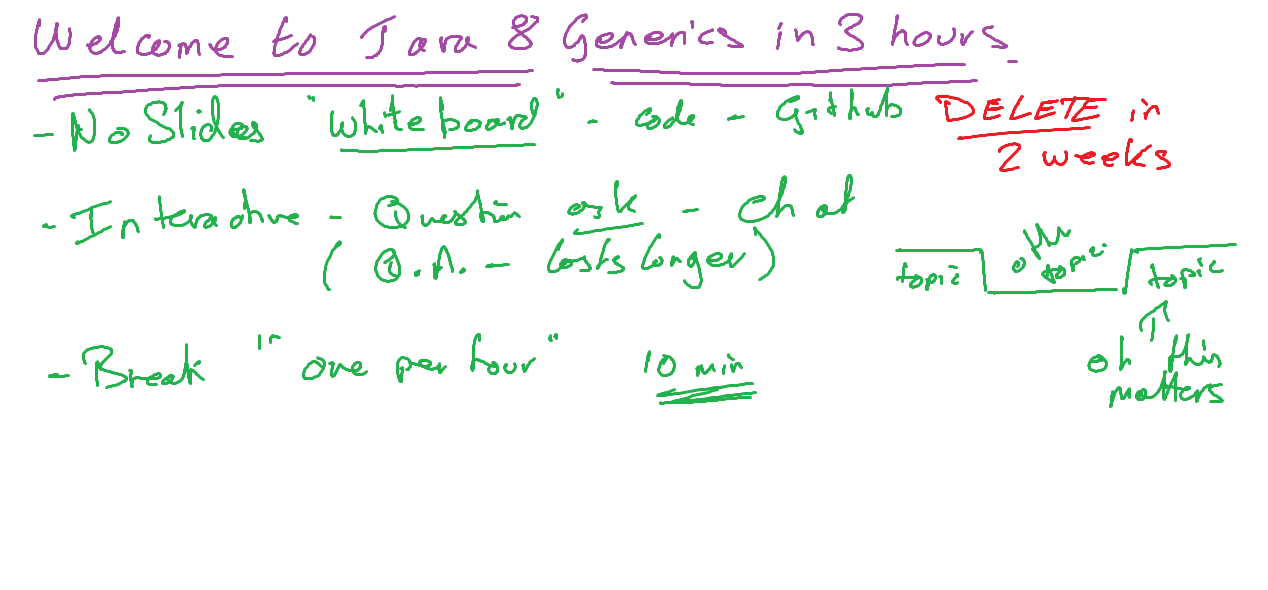 Welcome to Java 8 Generics in 3 hours
- No Slides "Whiteboard" - code - Github DELETE in
2 weeks
- Interactive - Question ask - Chat
(Q.A. - lasts longer)
topic off topic topic
- Break "one per hour" 10 min
oh this
matters